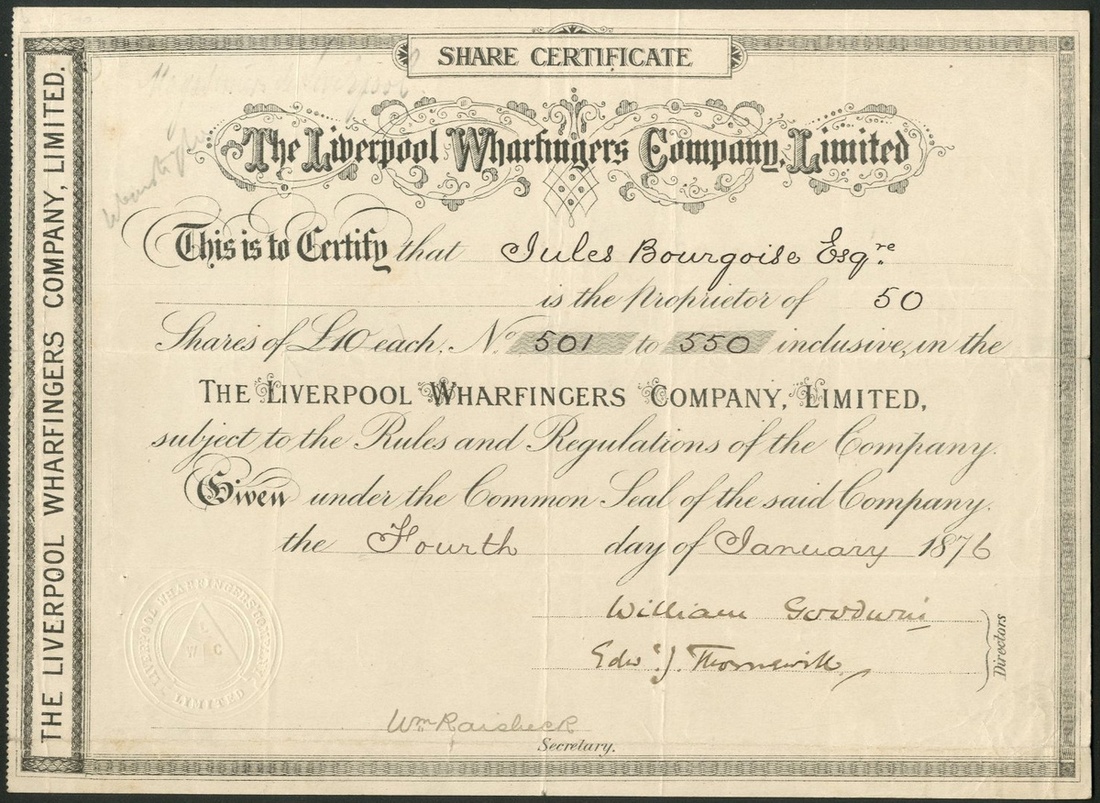 SHARE CERTIFICATE
The Liverpool Wharfingers Company, Limited
This is to Certify that Jules Bourgoise Esqre
is the Proprietor of 50
Shares of £10 each. No. 501 to 550 inclusive, in the
THE LIVERPOOL WHARFINGERS COMPANY, LIMITED,
subject to the Rules and Regulations of the Company.
Given under the Common Seal of the said Company.
the Fourth day of January 1876
William Goodwin
Edw. J.
Directors
Wm Raisbeck
Secretary.
THE LIVERPOOL WHARFINGERS COMPANY, LIMITED.
LIVERPOOL WHARFINGERS COMPANY
LIMITED
L
W C